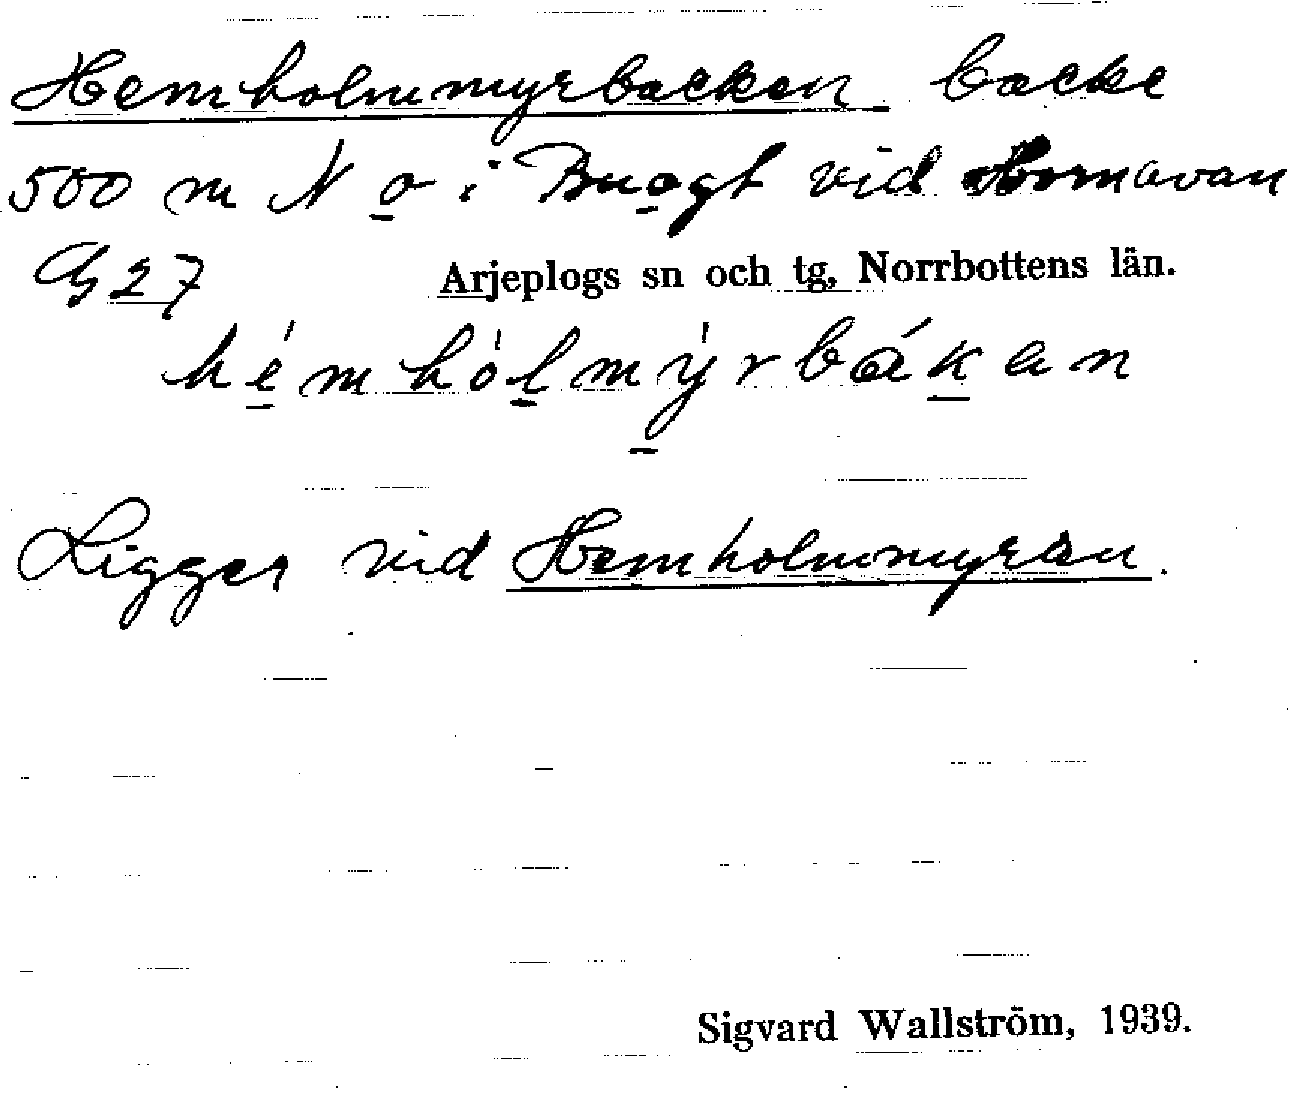 Hemholmmyrbacken backe
500 m N o i Buogt vid Hornavan
G 27 Arjeplogs sn och tg, Norrbottens län.
hémhólmýrbákan
Ligger vid Hemholmmyran.
Sigvard Wallström, 1939.